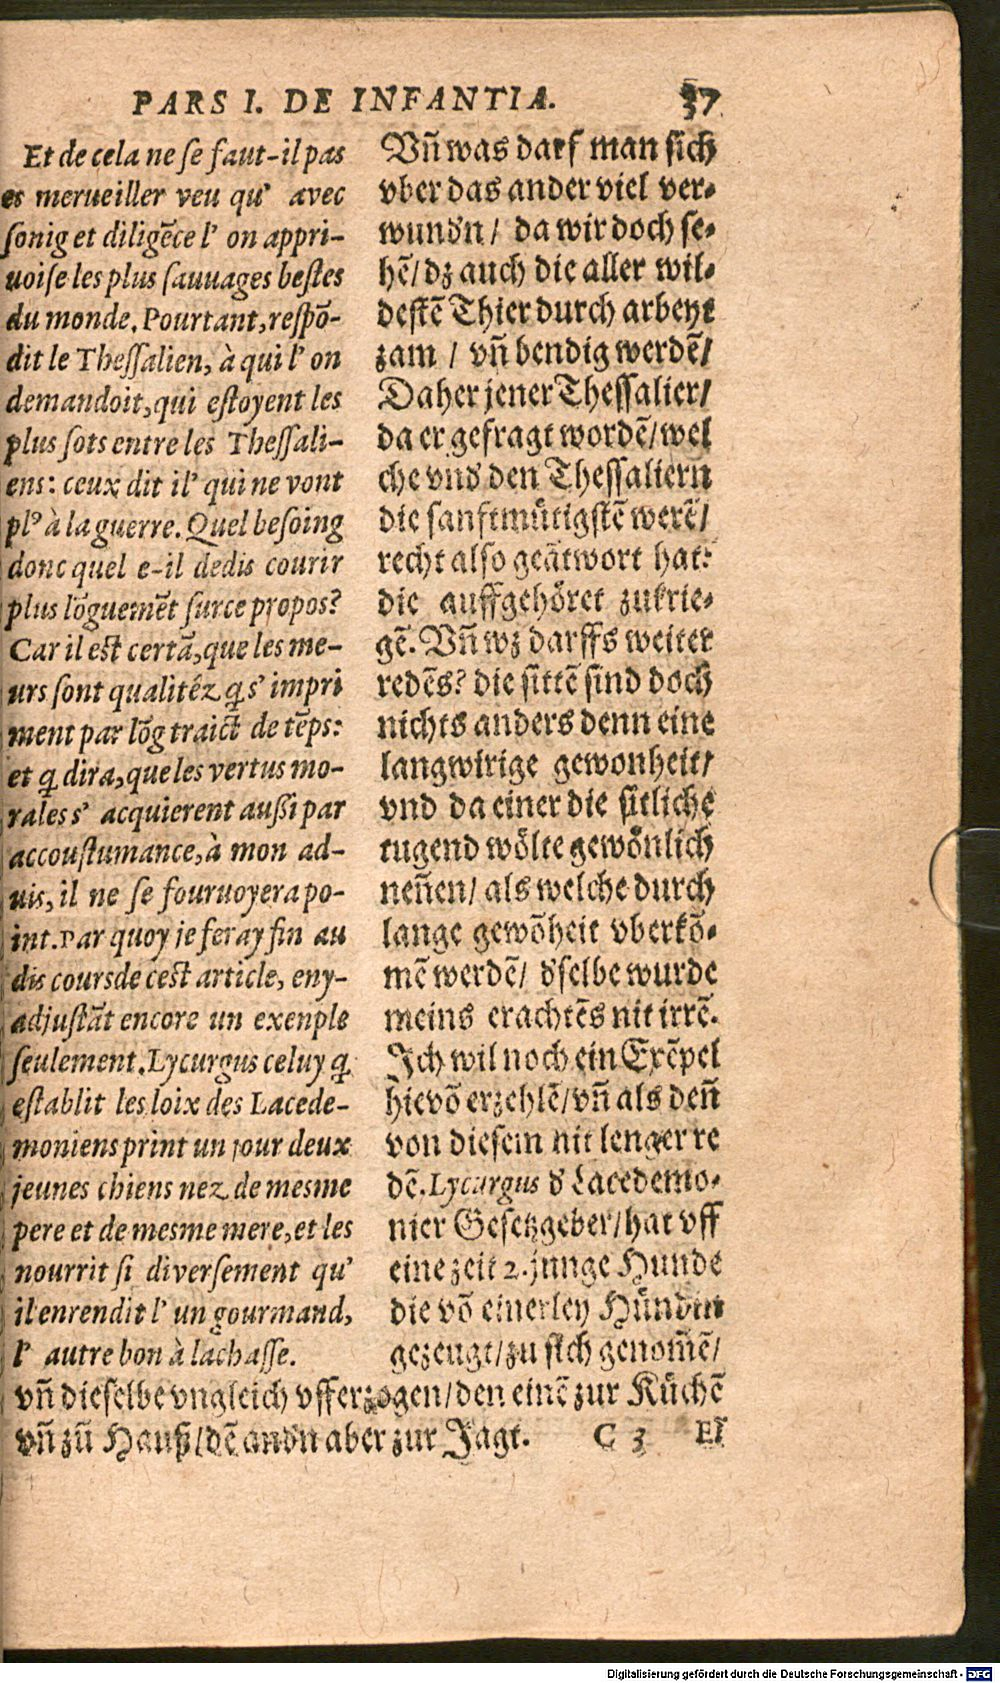 PARS I. DE INFANTIA. 37
Et de cela ne se faut-il pas
es merueiller veu qu' avec
sonig et diligēce l' on appri-
uoise les plus sauuages bestes
du monde. Pourtant, respō-
dit le Thessalien, à qui l' on
demandoit, qui estoyent les
plus sots entre les Thessali-
ens: ceux dit il' qui ne vont
plꝰ à la guerre. Quel besoing
donc quel e-il dedis courir
plus lōguemēt surce propos?
Car il est certā, que les me-
urs sont qualitéz ꝗ s' impri
ment par lōg traict de tēps:
et ꝗ dira, que les vertus mo-
rales s' acquierent aussi par
accoustumance, à mon ad-
uis, il ne se fouruoyera po-
int. Par quoy je feray fin au
dis coursde cest article, eny-
adjustāt encore un exenple
seulement. Lycurgus celuy ꝗ
establit les loix des Lacede-
moniens print un jour deux
jeunes chiens nez de mesme
pere et de mesme mere, et les
nourrit si diversement qu'
il enrendit l' un gourmand,
l' autre bon à lachasse.
Vñ was darf man sich
vber das ander viel ver-
wundn / da wir doch se-
hē / dz auch die aller wil-
destē Thier durch arbeyt
zam / vñ bendig werdē /
Daher jener Thessalier /
da er gefragt wordē / wel
che vnd den Thessaliern
die sanftmütigstē werē /
recht also geātwort hat:
die auffgehöret zukrie-
gē. Vñ wz darffs weiter
redēs? die sittē sind doch
nichts anders denn eine
langwirige gewonheit /
vnd da einer die sitliche
tugend wölte gewönlich
neñen / als welche durch
lange gewōheit vberkō-
mē werdē / dselbe wurde
meins erachtēs nit irrē.
Ich wil noch ein Exēpel
hievō erzehlē / vñ als deñ
von diesem nit lenger re
dē. Lycurgus d Lacedemo-
nier Gesetzgeber / hat vff
eine zeit 2. junge Hunde
die vō einerley Hündin
gezeugt / zu sich genom̃ē /
vñ dieselbe vngleich vfferzogen / den einē zur Küchē
vñ zū Hauß / dē andn aber zur Jagt. C 3 Et
Digitalisierung gefördert durch die Deutsche Forschungsgemeinschaft - DFG